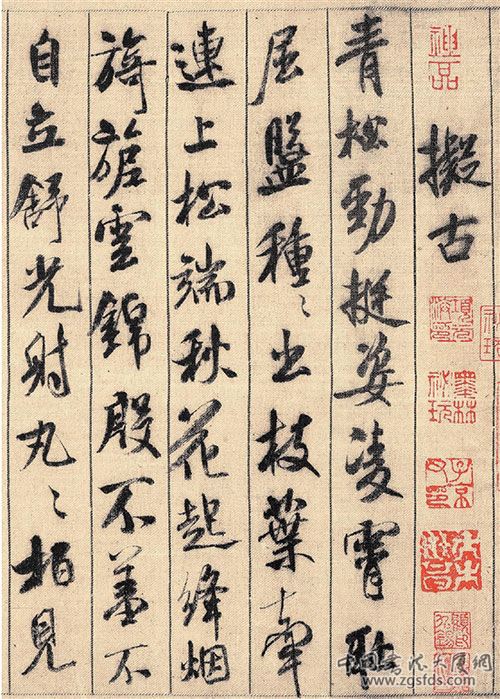 神品
擬古
青松勁挺姿凌霄耻
屈盤種〻出枝葉牽
連上松端秋花起絳烟
旖旎雲錦殷不羞不
自立舒光射丸〻柏見
墨林秘玩
子京父印
www.zgsfds.com